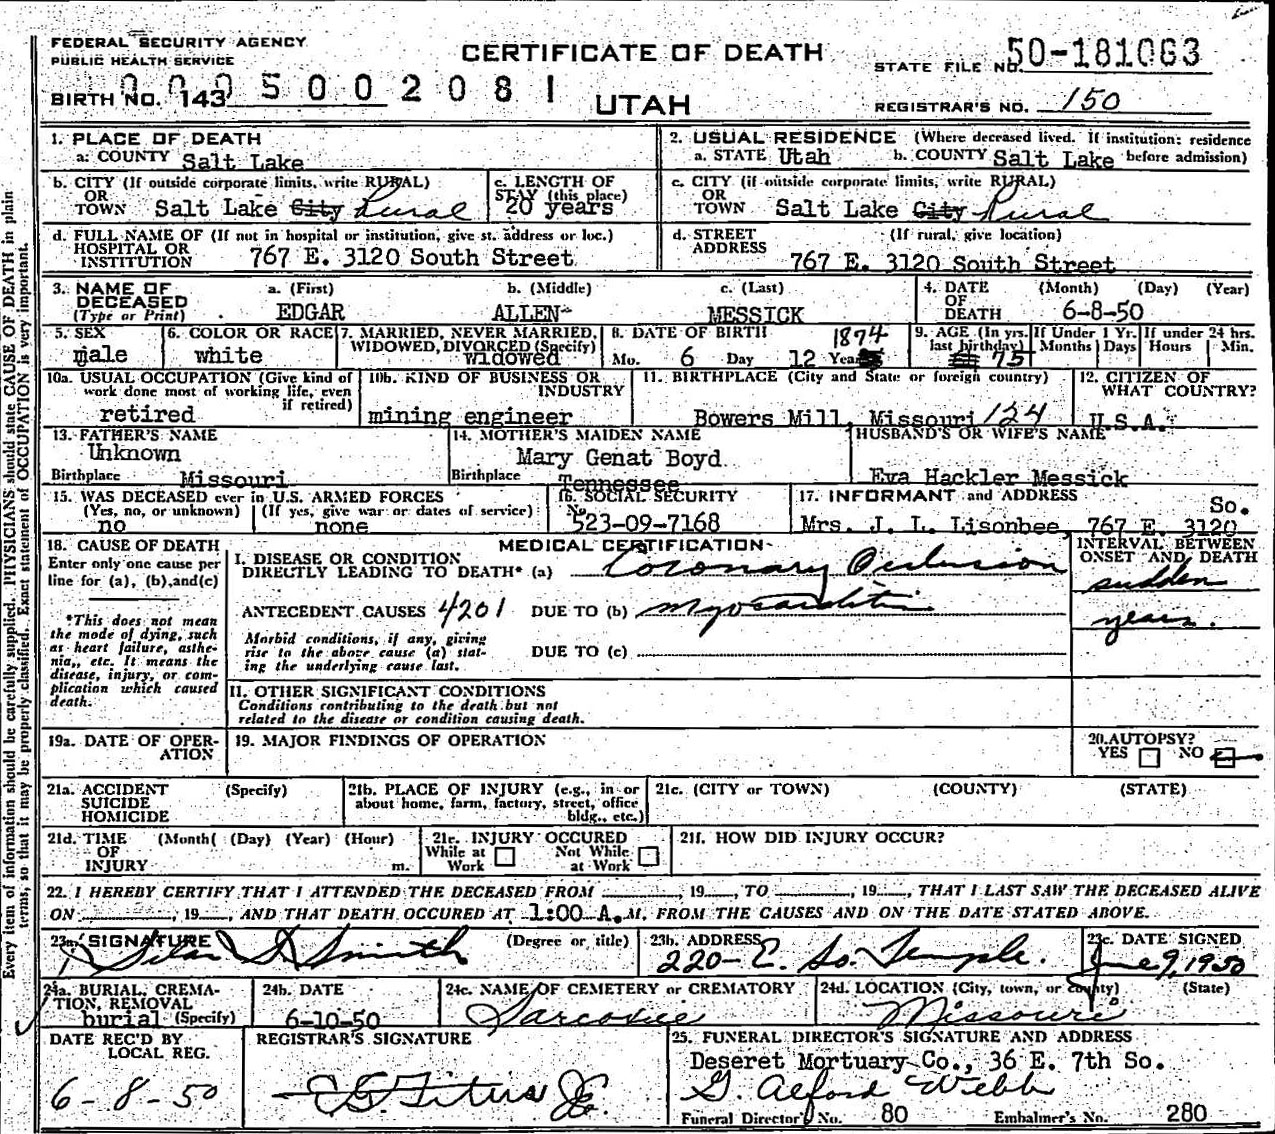 FEDERAL SECURITY AGENCY
PUBLIC HEALTH SERVICE
CERTIFICATE OF DEATH
STATE FILE NO. 50-181063
BIRTH NO. 143 0005002081
UTAH
REGISTRAR'S NO. 150
1. PLACE OF DEATH
a: COUNTY Salt Lake
2. USUAL RESIDENCE (Where deceased lived. If institution: residence before admission)
a. STATE Utah b. COUNTY Salt Lake
b. CITY (If outside corporate limits, write RURAL) OR TOWN Salt Lake City Rural
c. LENGTH OF STAY (this place) 20 years
c. CITY (if outside corporate limits, write RURAL) OR TOWN Salt Lake City Rural
d. FULL NAME OF (If not in hospital or institution, give st. address or loc.) HOSPITAL OR INSTITUTION 767 E. 3120 South Street
d. STREET ADDRESS (If rural, give location) 767 E. 3120 South Street
3. NAME OF DECEASED (Type or Print) a. (First) EDGAR b. (Middle) ALLEN c. (Last) MESSICK
4. DATE OF DEATH (Month) (Day) (Year) 6-8-50
5. SEX male
6. COLOR OR RACE white
7. MARRIED, NEVER MARRIED, WIDOWED, DIVORCED (Specify) widowed
8. DATE OF BIRTH Mo. 6 Day 12 Year 1874
9. AGE (In yrs. last birthday) 75 If Under 1 Yr. Months Days If under 24 hrs. Hours Min.
10a. USUAL OCCUPATION (Give kind of work done most of working life, even if retired) retired
10b. KIND OF BUSINESS OR INDUSTRY mining engineer
11. BIRTHPLACE (City and State or foreign country) Bowers Mill, Missouri 124
12. CITIZEN OF WHAT COUNTRY? U.S.A.
13. FATHER'S NAME Unknown
Birthplace Missouri
14. MOTHER'S MAIDEN NAME Mary Genat Boyd
Birthplace Tennessee
HUSBAND'S OR WIFE'S NAME Eva Hackler Messick
15. WAS DECEASED ever in U.S. ARMED FORCES (Yes, no, or unknown) no (If yes, give war or dates of service) none
16. SOCIAL SECURITY No. 523-09-7168
17. INFORMANT and ADDRESS Mrs. J. L. Lisonbee, 767 E. 3120 So.
18. CAUSE OF DEATH
Enter only one cause per line for (a), (b), and (c)
*This does not mean the mode of dying, such as heart failure, asthenia, etc. It means the disease, injury, or complication which caused death.
MEDICAL CERTIFICATION
INTERVAL BETWEEN ONSET AND DEATH
I. DISEASE OR CONDITION DIRECTLY LEADING TO DEATH* (a) Coronary Occlusion sudden
ANTECEDENT CAUSES 4201 DUE TO (b) Myocarditis years.
Morbid conditions, if any, giving rise to the above cause (a) stating the underlying cause last. DUE TO (c)
II. OTHER SIGNIFICANT CONDITIONS
Conditions contributing to the death but not related to the disease or condition causing death.
19a. DATE OF OPERATION
19. MAJOR FINDINGS OF OPERATION
20. AUTOPSY? YES NO
21a. ACCIDENT SUICIDE HOMICIDE (Specify)
21b. PLACE OF INJURY (e.g., in or about home, farm, factory, street, office bldg., etc.)
21c. (CITY or TOWN) (COUNTY) (STATE)
21d. TIME OF INJURY (Month( (Day) (Year) (Hour) m.
21e. INJURY OCCURED While at Work Not While at Work
21f. HOW DID INJURY OCCUR?
22. I HEREBY CERTIFY THAT I ATTENDED THE DECEASED FROM , 19 , TO , 19 , THAT I LAST SAW THE DECEASED ALIVE
ON , 19 , AND THAT DEATH OCCURED AT 1:00 A.M, FROM THE CAUSES AND ON THE DATE STATED ABOVE.
23a. SIGNATURE Silas S Smith (Degree or title)
23b. ADDRESS 220-E. So. Temple.
23c. DATE SIGNED June 9, 1950
24a. BURIAL, CREMATION, REMOVAL (Specify) burial
24b. DATE 6-10-50
24c. NAME OF CEMETERY or CREMATORY Sarcoxie
24d. LOCATION (City, town, or county) (State) Missouri
DATE REC'D BY LOCAL REG. 6-8-50
REGISTRAR'S SIGNATURE
25. FUNERAL DIRECTOR'S SIGNATURE AND ADDRESS
Deseret Mortuary Co., 36 E. 7th So.
G. Alford Webb
Funeral Director's No. 80 Embalmer's No. 280
Every item of information should be carefully supplied. PHYSICIANS should state CAUSE OF DEATH in plain
terms, so that it may be properly classified. Exact statement of OCCUPATION is very important.